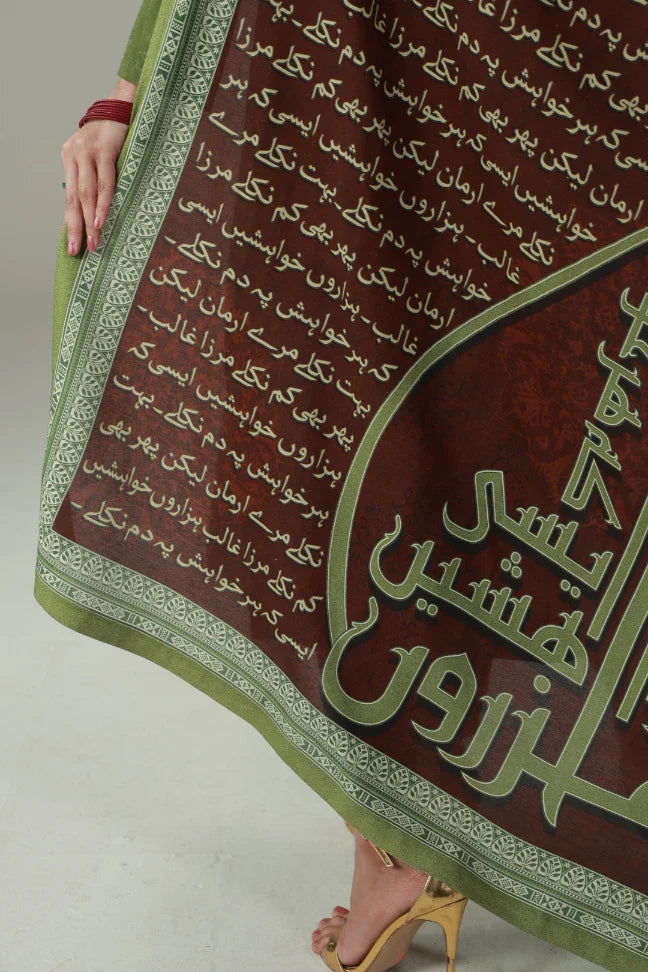 پہ دم نکلے
بھی کم نکلے مرزا غالب
کہ ہر خواہش پہ دم نکلے
ارمان لیکن پھر بھی کم نکلے مرزا غالب
خواہشیں ایسی کہ ہر خواہش پہ دم نکلے۔ بہت
نکلے مرے ارمان لیکن پھر بھی کم نکلے مرزا
غالب۔ ہزاروں خواہشیں ایسی کہ ہر
خواہش پہ دم نکلے۔ بہت نکلے مرے
ارمان لیکن پھر بھی کم نکلے مرزا
غالب۔ ہزاروں خواہشیں ایسی
کہ ہر خواہش پہ دم نکلے۔
بہت نکلے مرے ارمان لیکن
پھر بھی کم نکلے مرزا غالب۔
ہزاروں خواہشیں ایسی کہ
ہر خواہش پہ دم نکلے۔ بہت
نکلے مرے ارمان لیکن پھر بھی
کم نکلے مرزا غالب ہزاروں خواہشیں
ایسی کہ ہر خواہش پہ دم نکلے۔
ہزاروں